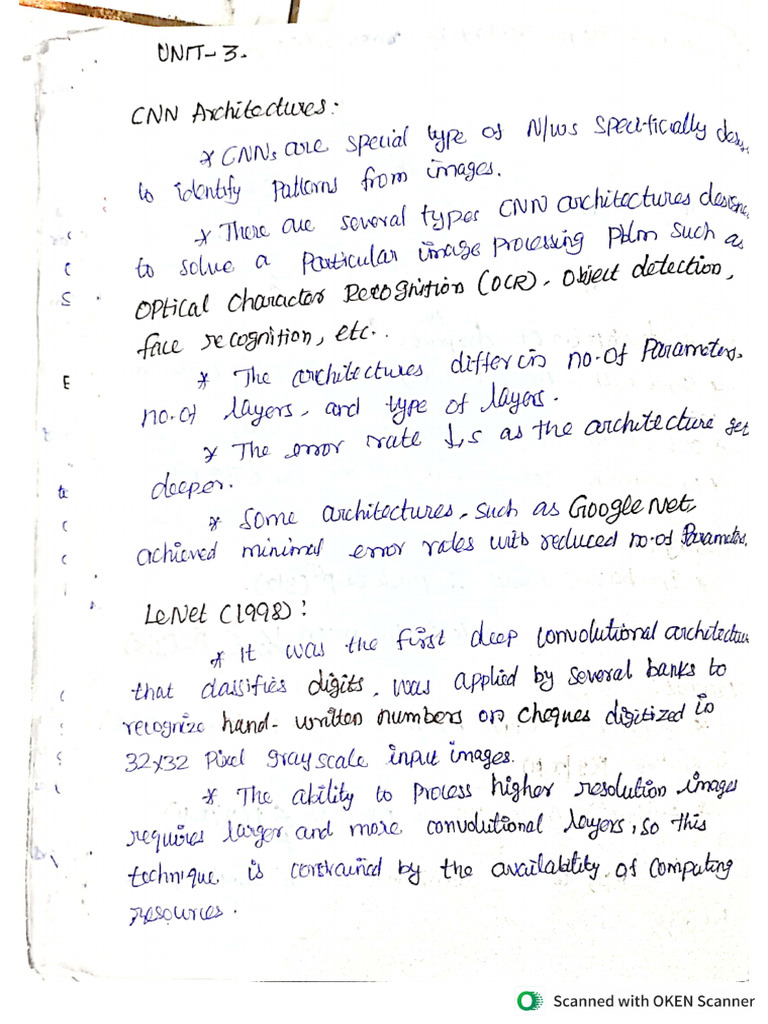 UNIT-3.
CNN Architectures:
* CNNs are special type of N/ws specifically
to identify patterns from images.
* There are several types CNN architectures
to solve a particular image processing pblm such as
Optical Charactor Recognition (OCR), Object detection,
face recognition, etc..
* The architectures differ in no. of Parameters,
no. of layers, and type of layers.
* The error rate ↓s as the architecture get
deeper.
* Some architectures, such as Google Net,
achieved minimal error rates with reduced no. of Parameters.
LeNet (1998):
* It was the first deep convolutional
that classifies digits, was applied by several banks to
recognize hand-written numbers on cheques digitized in
32x32 pixel grayscale input images.
* The ability to process higher resolution images
requires larger and more convolutional layers, so this
technique is constrained by the availability of computing
resources.
Scanned with OKEN Scanner